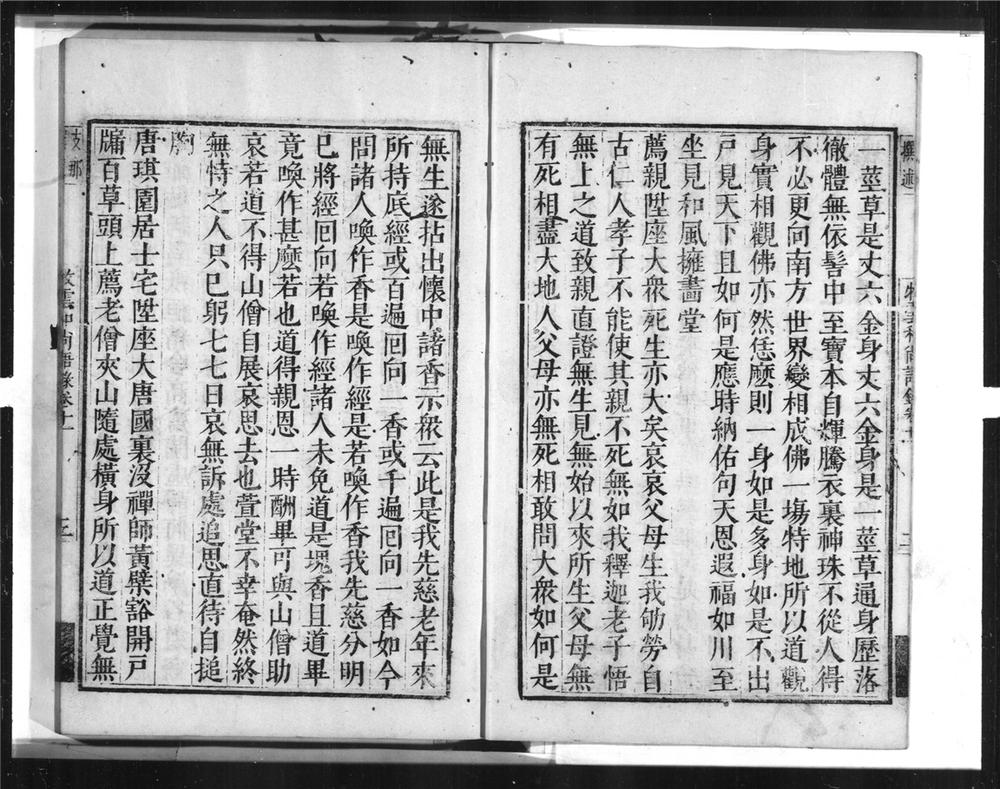 一莖草是丈六金身丈六金身是一莖草通身歷落
徹體無依髻中至寶本自輝騰衣裏神珠不從人得
不必更向南方世界變相成佛一塲特地所以道觀
身實相觀佛亦然恁麽則一身如是多身如是不出
戸見天下且如何是應時納佑句天恩遐福如川至
坐見和風擁畵堂
薦親陞座大衆死生亦大矣哀哀父母生我劬勞自
古仁人孝子不能使其親不死無如我釋迦老子悟
無上之道致親直證無生見無始以來所生父母無
有死相盡大地人父母亦無死相敢問大衆如何是
無生遂拈出懷中諸香示衆云此是我先慈老年來
所持底經或百遍囘向一香或千遍囘向一香如今
問諸人喚作香是喚作經是若喚作香我先慈分明
已將經囘向若喚作經諸人未免道是塊香且道畢
竟喚作甚麽若也道得親恩一時酬畢可與山僧助
哀若道不得山僧自展哀思去也萱堂不幸奄然終
無恃之人只已躬七七日哀無訴處追思直待自搥
胷
唐琪園居士宅陞座大唐國裏没禪師黃檗豁開戸
牖百草頭上薦老僧夾山隨處橫身所以道正覺無
語錄卷十一